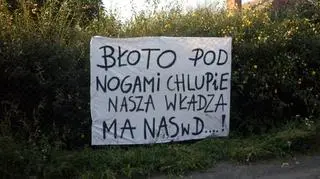 BŁOTO POD
NOGAMI CHLUPIE
NASZA WŁADZA
MA NAS W D....!